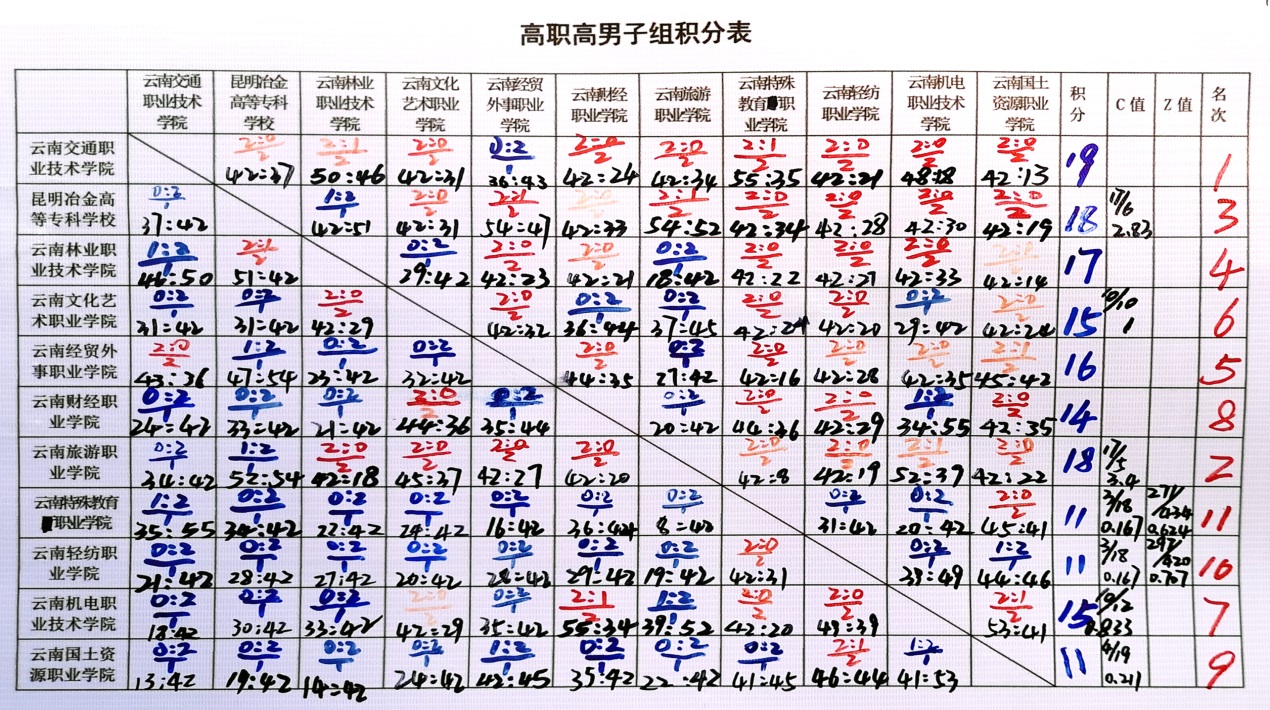 高职高男子组积分表
云南交通职业技术学院 昆明冶金高等专科学校 云南林业职业技术学院 云南文化艺术职业学院 云南经贸外事职业学院 云南财经职业学院 云南旅游职业学院 云南特殊教育职业学院 云南轻纺职业学院 云南机电职业技术学院 云南国土资源职业学院 积分 C值 Z值 名次
云南交通职业技术学院 2:0 2 42:37 2:1 2 50:46 2:0 2 42:31 0:2 1 36:43 2:0 2 42:24 2:0 2 42:34 2:1 2 55:35 2:0 2 42:21 2:0 2 48:18 2:0 2 42:13 19 1
昆明冶金高等专科学校 0:2 37:42 1:2 1 42:51 2:0 2 42:31 2:1 2 54:47 42:33 2:1 2 54:52 2:0 2 42:34 2:0 2 42:28 2:0 2 42:30 2:0 2 42:19 18 17/6 2.83 3
云南林业职业技术学院 1:2 1 46:50 2:1 2 51:42 0:2 1 29:42 2:0 2 42:23 2:0 2 42:21 0:2 1 18:42 2:0 2 42:22 2:0 2 42:27 2:0 2 42:33 42:14 17 4
云南文化艺术职业学院 0:2 1 31:42 0:2 1 31:42 2:0 2 42:29 2:0 2 42:32 0:2 1 36:44 0:2 1 37:45 2:0 2 42:24 2:0 2 42:20 0:2 1 29:42 2:0 2 42:24 15 10/10 1 6
云南经贸外事职业学院 2:0 2 43:36 1:2 1 47:54 0:2 1 23:42 0:2 1 32:42 2:0 2 44:35 0:2 1 27:42 2:0 2 42:16 2:0 2 42:28 2:0 2 42:35 2:1 2 45:42 16 5
云南财经职业学院 0:2 1 24:42 0:2 1 33:42 0:2 1 21:42 2:0 2 44:36 0:2 1 35:44 0:2 1 20:42 2:0 2 44:36 2:0 2 42:29 1:2 1 34:55 2:0 2 42:35 14 8
云南旅游职业学院 0:2 1 34:42 1:2 1 52:54 2:0 2 42:18 2:0 2 45:37 2:0 2 42:27 2:0 2 42:20 2:0 2 42:8 2:0 2 42:19 2:1 2 52:39 2:0 2 42:22 18 17/5 3.4 2
云南特殊教育职业学院 1:2 1 35:55 0:2 1 34:42 0:2 1 22:42 0:2 1 24:42 0:2 1 16:42 0:2 1 36:44 0:2 1 8:42 0:2 1 31:42 0:2 1 20:42 2:0 2 45:41 11 3/18 0.167 271/434 0.624 11
云南轻纺职业学院 0:2 1 21:42 0:2 1 28:42 0:2 1 27:42 0:2 1 20:42 0:2 1 28:42 0:2 1 29:42 0:2 1 19:42 2:0 2 42:31 0:2 1 39:49 1:2 1 44:46 11 3/18 0.167 297/420 0.707 10
云南机电职业技术学院 0:2 1 18:42 0:2 1 30:42 0:2 1 33:42 2:0 2 42:29 0:2 1 35:42 2:1 2 55:34 1:2 1 39:52 2:0 2 42:20 2:0 2 49:39 2:1 2 53:41 15 10/12 0.833 7
云南国土资源职业学院 0:2 1 13:42 0:2 1 19:42 0:2 1 14:42 0:2 1 24:42 1:2 1 42:45 0:2 1 35:42 0:2 1 22:42 0:2 1 41:45 2:1 2 46:44 1:2 1 41:53 11 4/19 0.211 9